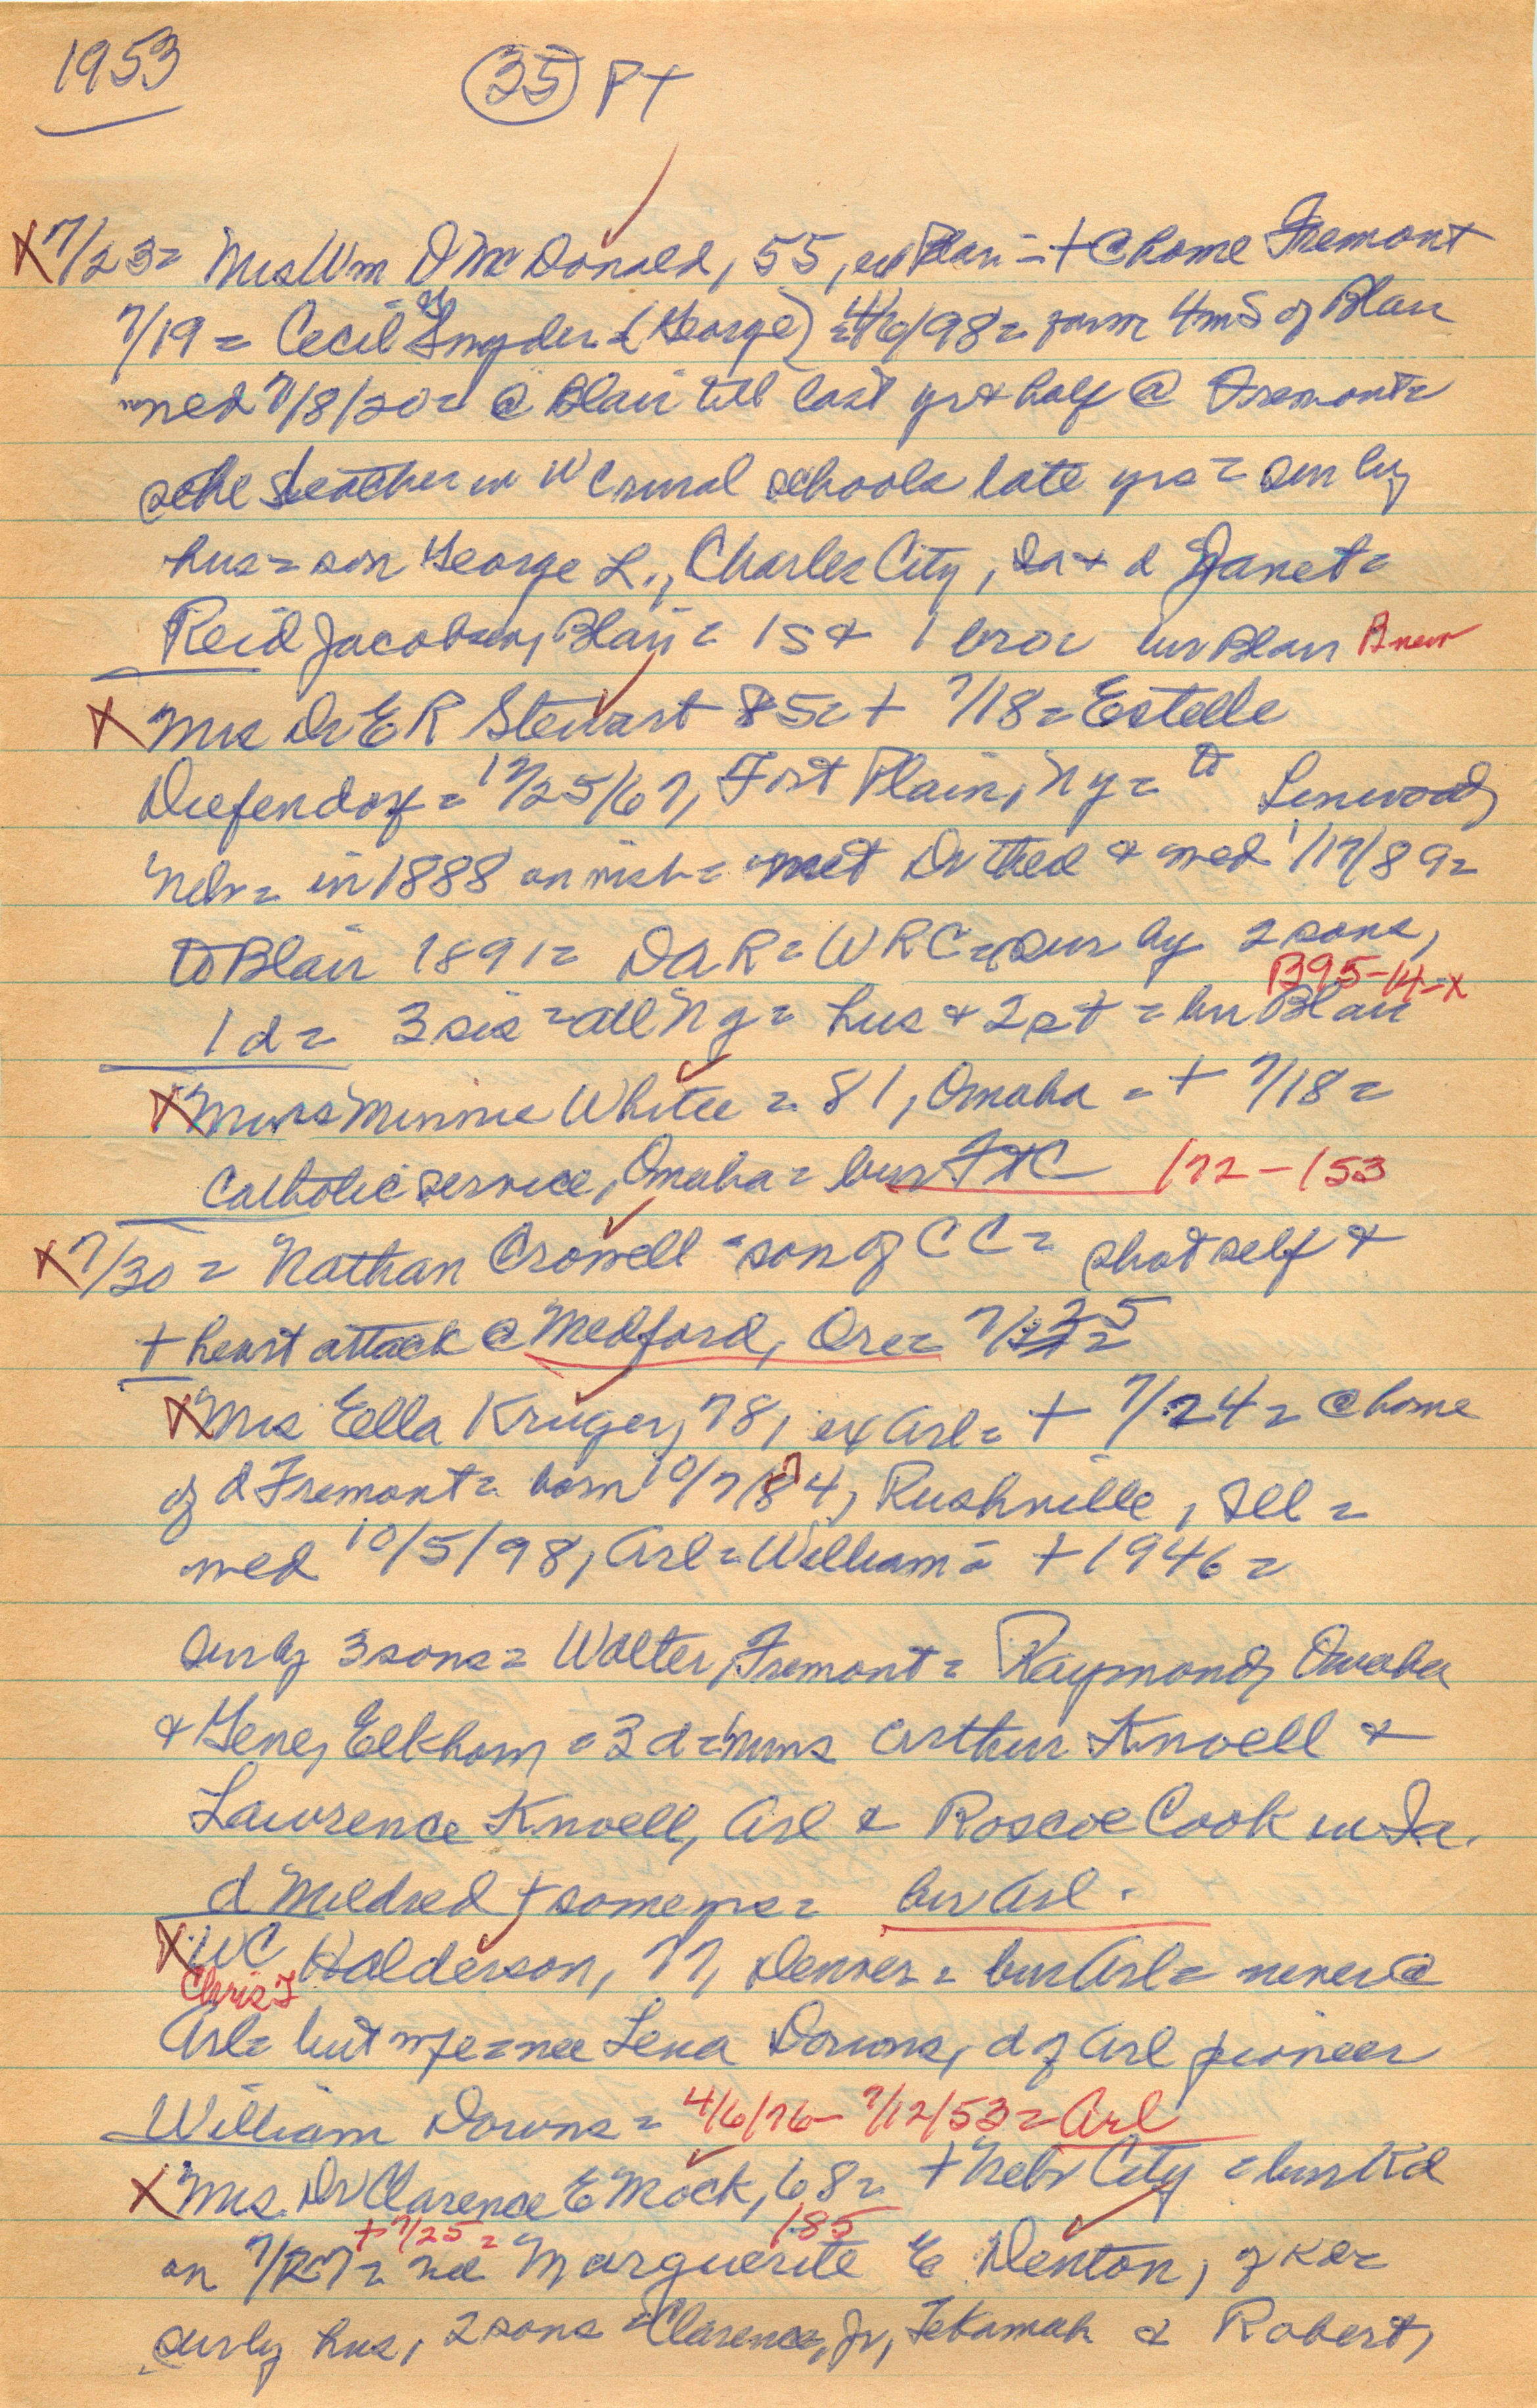 1953 (35) PT
X 7/23= Mrs Wm D McDonald, 55, ex Blair = + @ home Fremont
7/19 = Cecil Snyder = (George) = 4/6/98 = farm 4m S of Blair
med 7/8/20= @ Blair till last yr & half @ Fremont=
teacher in WC rural schools late yrs = sur by
hus = son George L., Charles City, Ia + d Janet=
Reid Jacobsen, Blair = 1 s & 1 bro= bur Blair B new
X Mrs Dr E R Stewart 85= + 7/18= Estelle
Diefendorf = 12/25/67, Fort Plain, N y = to Linwood,
Nebr= in 1888 on visit = met Dr there & med 1/17/89=
to Blair 1891= DAR = WRC = sur by 2 sons,
B95-14-X
1 d = 3 sis = all N y = hus & 2 s + = bur Blair
X Mrs Minnie White = 81, Omaha = + 7/18=
Catholic service, Omaha = bur FtC 172-153
X 7/30 = Nathan Crowell = son of C C = shot self &
+ heart attack @ Medford, Ore= 7/25
X Mrs Ella Kruger, 78, ex Arl= + 7/24= @ home
of d Fremont= born 10/7/74, Rushville, Ill =
med 10/5/98, Arl = William = + 1946 =
sur by 3 sons = Walter, Fremont = Raymond, Omaha
& Gene, Elkhorn = 3 d = Mmes Arthur Knoell &
Lawrence Knoell, Arl & Roscoe Cook in Ia.
d Mildred + some yrs = bur Arl.
X WC Halderson, 77, Denver = bur Arl = never @
Chris J
Arl= but wife = nee Lena Downs, d of Arl pioneer
William Downs = 4/6/76- 7/12/53 = Arl
X Mrs Dr Clarence E Mock, 68 = + Nebr City = bur Kd
+ 7/25 = 185
on 7/27= nee Marguerite E Denton, of Kd=
sur by hus, 2 sons = Clarence, Jr, Tekamah & Robert,